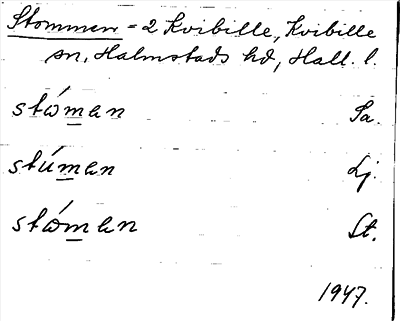 Stommen = 2 Kvibille, Kvibille
sn, Halmstads hd, Hall. l.
stѡ́man Sa.
stúman Lj.
stѡ́man St.
1947.